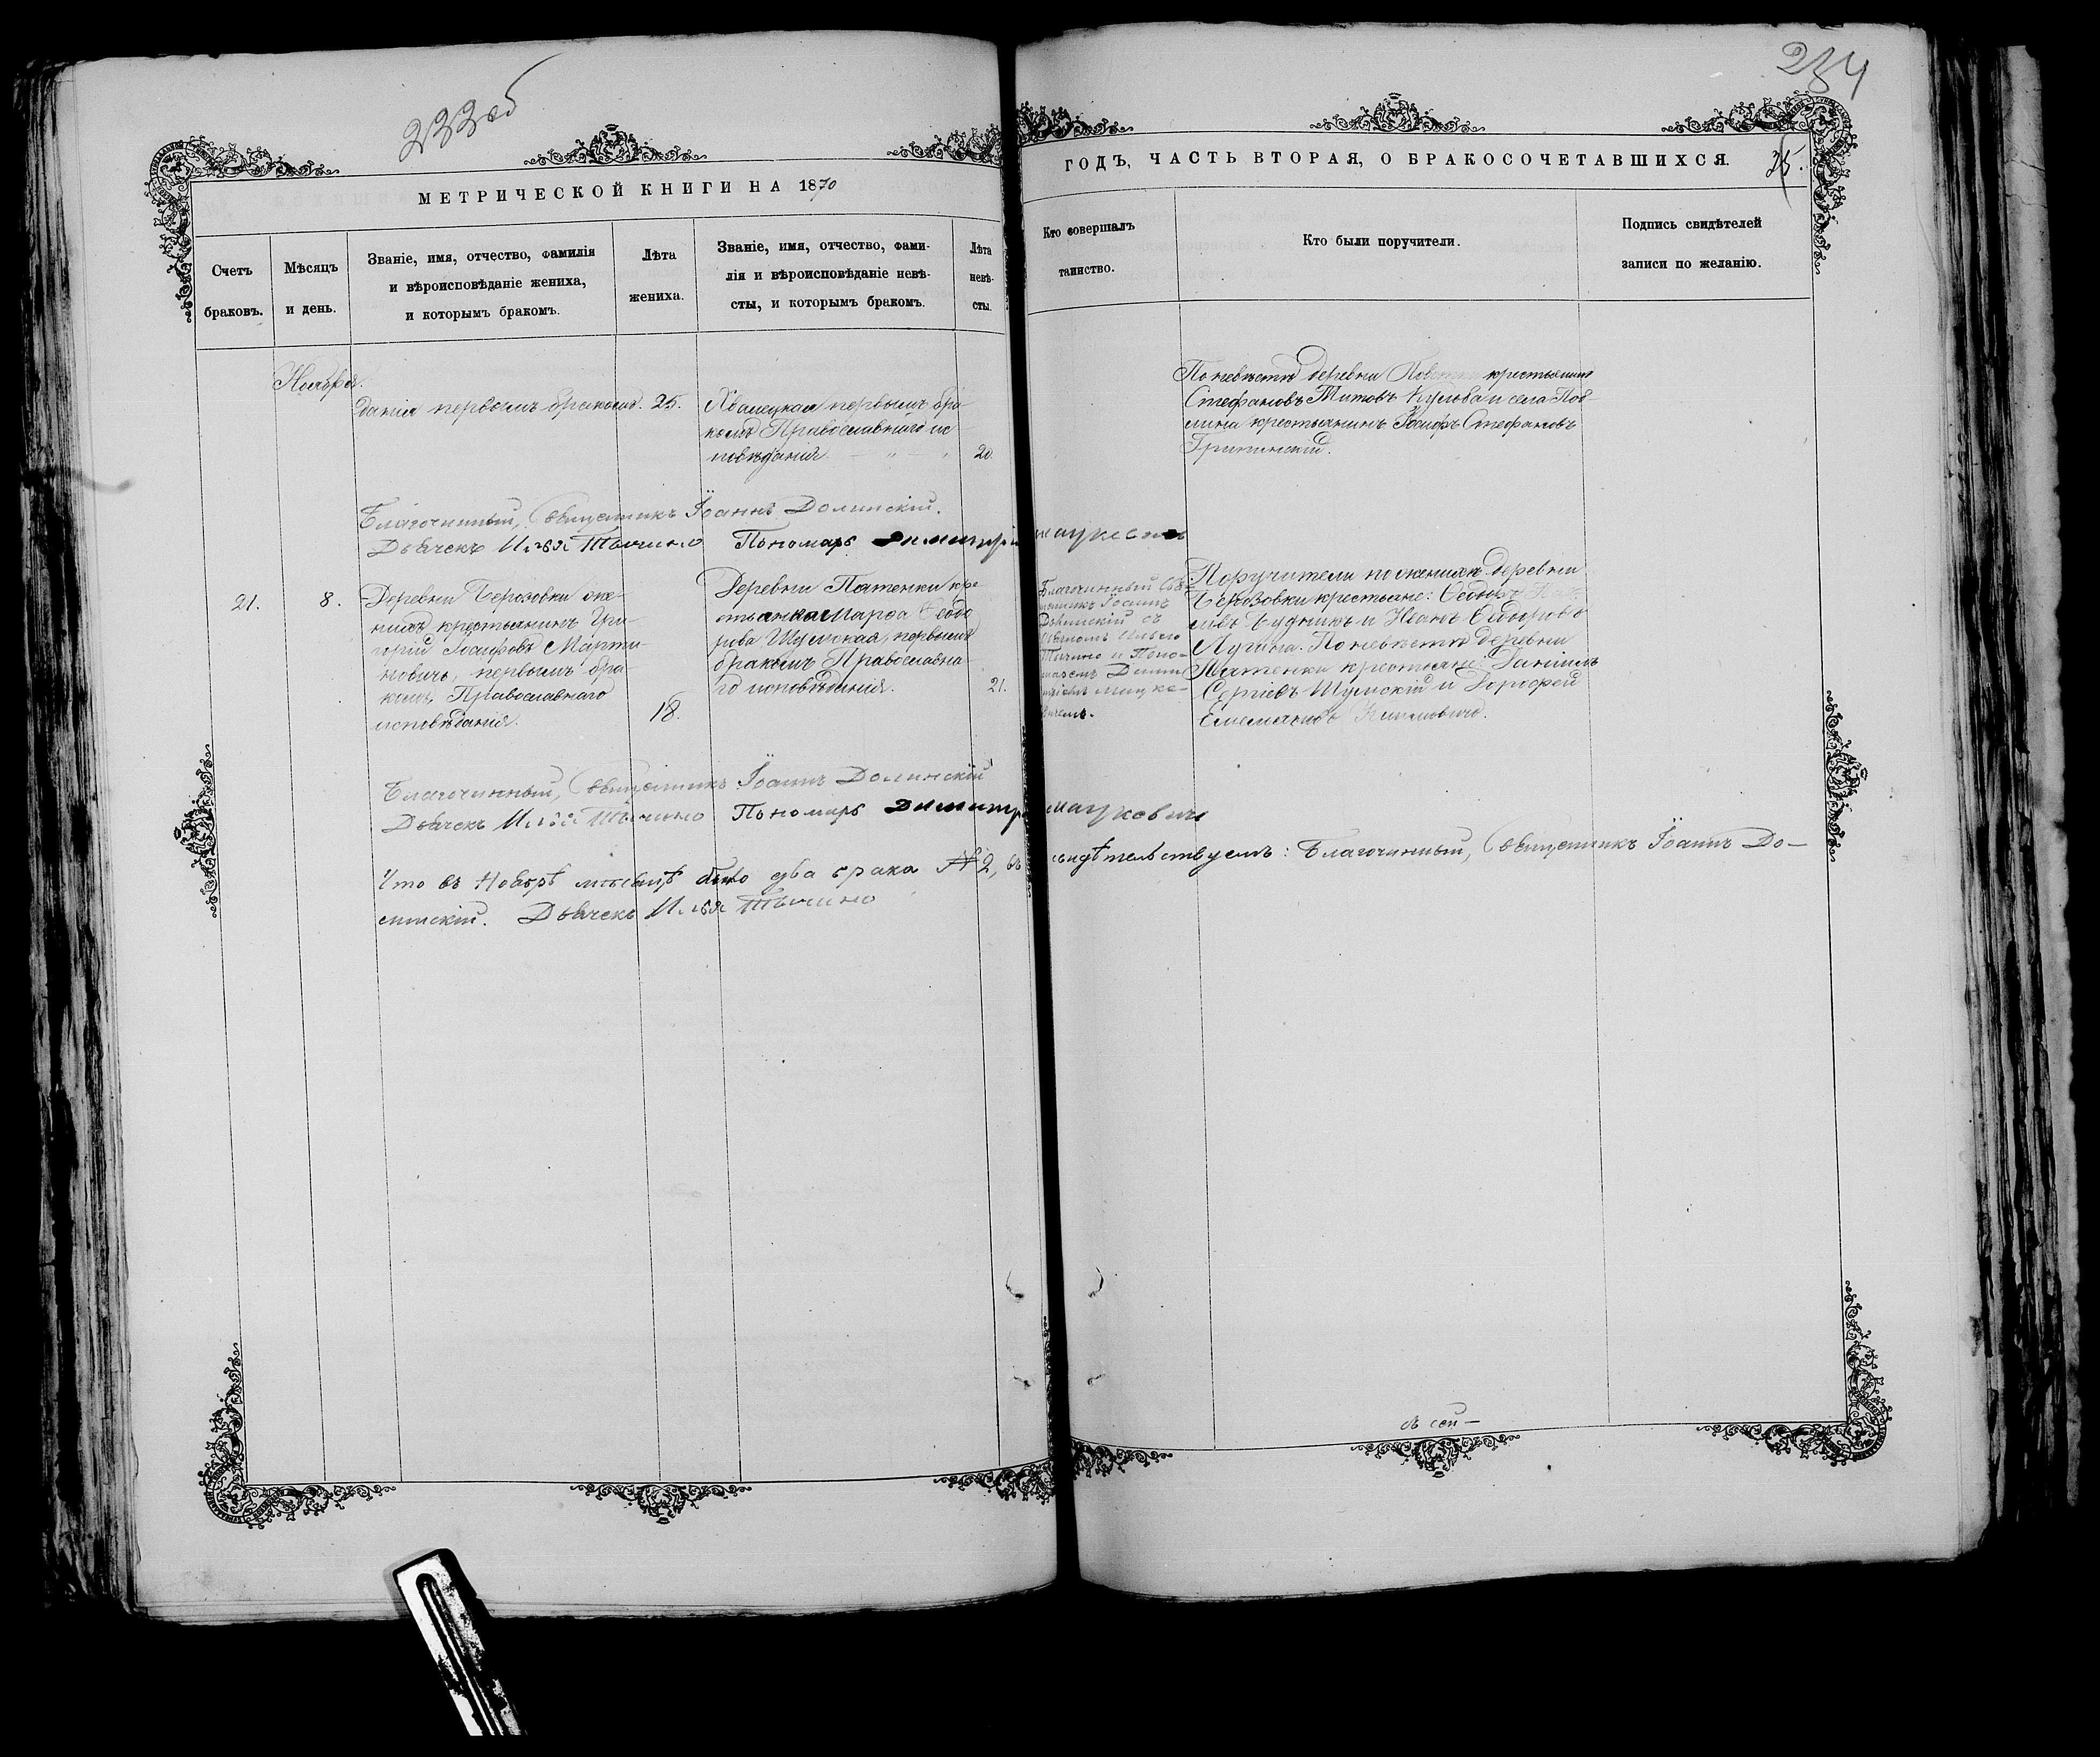 233об
234
МЕТРИЧЕСКОЙ КНИГИ НА 1870
ГОДЪ, ЧАСТЬ ВТОРАЯ, О БРАКОСОЧЕТАВШИХСЯ.
Счетъ
браковъ.
Мѣсяцъ
и день.
Званіе, имя, отчество, фамилія
и вѣроисповѣданіе жениха,
и которымъ бракомъ.
Лѣта
жениха.
Званіе, имя, отчество, фами-
лія и вѣроисповѣданіе невѣ-
сты, и которымъ бракомъ.
Лѣта
невѣ-
сты.
Кто совершалъ
таинство.
Кто были поручители.
Подпись свидѣтелей
записи по желанію.
Ноября.
данія первымъ бракомъ.
25.
первымъ бра-
комъ Православнаго ис
повѣданія.
20.
По невѣстѣ деревни крестьянинъ
Стефановъ Титовъ и села
крестьянинъ Іосифъ Стефановъ
Благочинный, Священникъ Іоаннъ Долинскій.
Дьячекъ Илья Тычино Пономарь Димитрій Мацкевичъ
21.
8.
Деревни Березовки же-
нихъ крестьянинъ Гри-
горій Іосифовъ Марти-
новичъ, первымъ бра-
комъ, Православнаго
исповѣданія.
18.
Деревни Патенки кре-
стьянка Марѳа Ѳедо
рова Шумская, первымъ
бракомъ Православна-
го исповѣданія.
21.
Благочинный Свя-
щенникъ Іоаннъ
Долинскій съ
Дьячкомъ Ильею
Тычино и Поно-
маремъ Дими
тріемъ Мацке-
вичемъ.
Поручители по женихѣ деревни
Березовки крестьяне: Ѳедоръ
Будникъ и Иванъ Ѳедоровъ
Лучина. По невѣстѣ деревни
Патенки крестьяне: Даніилъ
Сергіевъ Шумскій и Дорофей
Емельяновъ
Благочинный, Священникъ Іоаннъ Долинскій
Дьячекъ Илья Тычино Пономарь Димитрій Мацкевичъ
Что въ Ноябрѣ мѣсяцѣ было два брака № 2, въ свидѣтельствуемъ: Благочинный, Священникъ Іоаннъ До-
линскій. Дьячекъ Илья Тычино